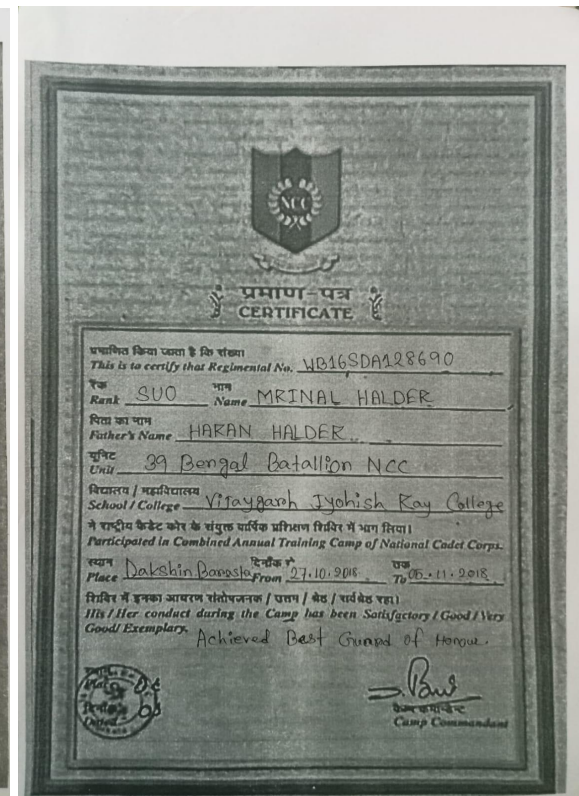 NCC
प्रमाण-पत्र
CERTIFICATE
प्रमाणित किया जाता है कि संख्या
This is to certify that Regimental No. WB16SDA128690
रैंक नाम
Rank SUO Name MRINAL HALDER
पिता का नाम
Father's Name HARAN HALDER
यूनिट
Unit 39 Bengal Batallion NCC
विद्यालय / महाविद्यालय
School / College Vijaygarh Jyohish Ray College
ने राष्ट्रीय कैडेट कोर के संयुक्त वार्षिक प्रशिक्षण शिविर में भाग लिया।
Participated in Combined Annual Training Camp of National Cadet Corps.
स्थान दिनाँक से तक
Place Dakshin From 27.10.2018 To 05.11.2018
शिविर में इनका आचरण संतोषजनक / उत्तम / श्रेष्ठ / सर्वश्रेष्ठ रहा।
His / Her conduct during the Camp has been Satisfactory / Good / Very
Good / Exemplary. Achieved Best Guard of Honour.
दिनाँक
Dated
कैम्प कमान्डेन्ट
Camp Commandant